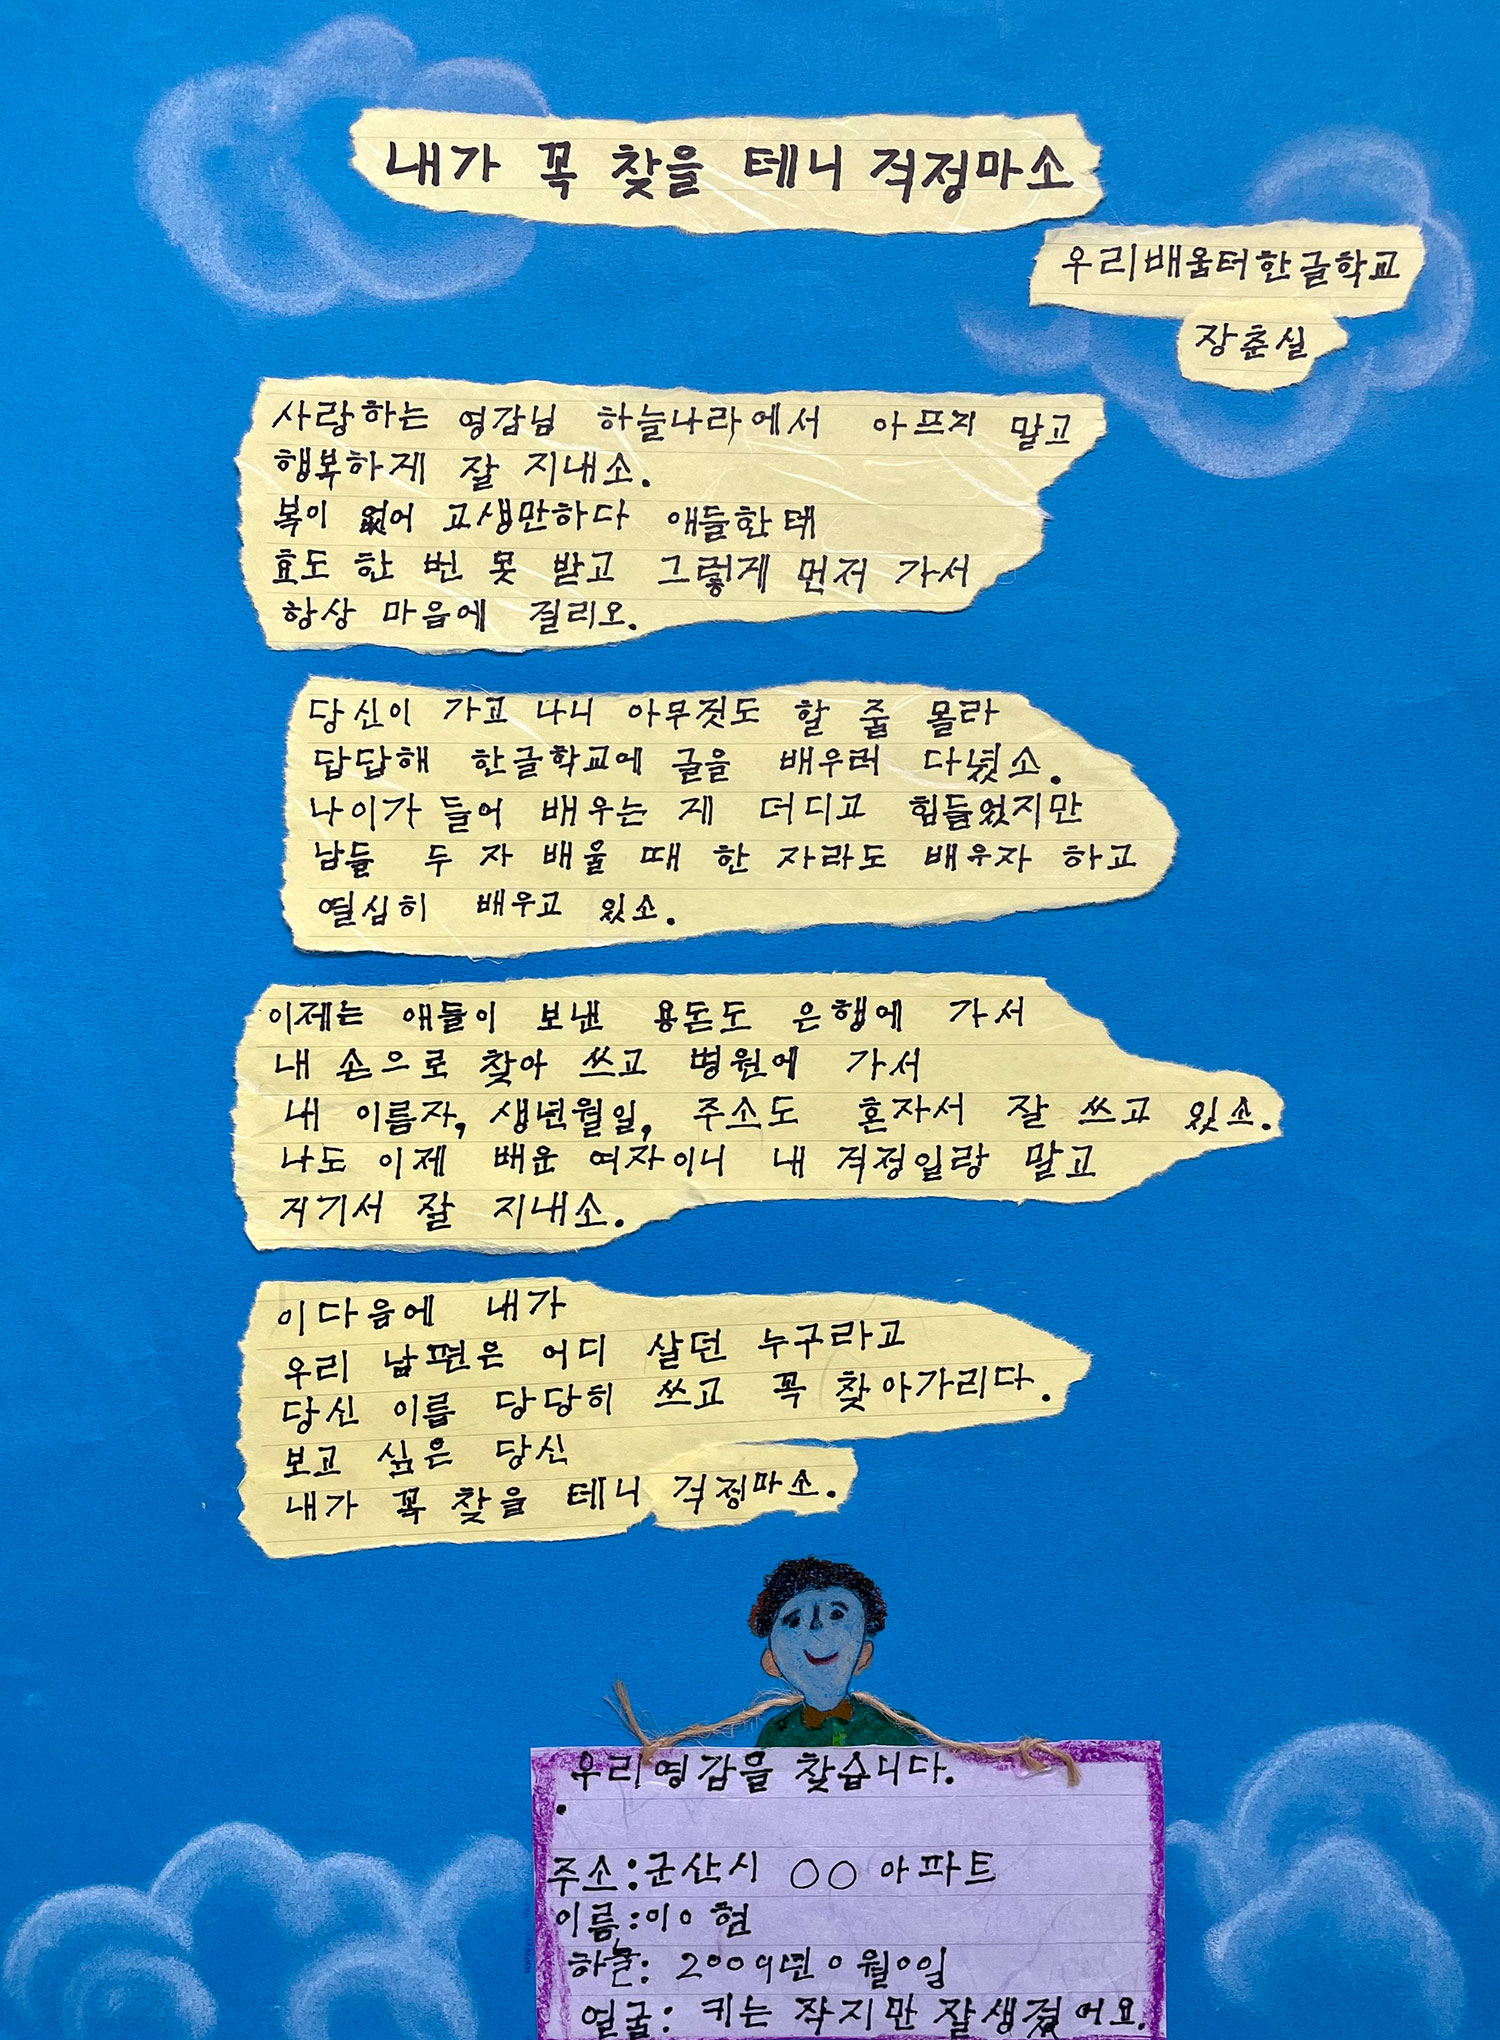 내가 꼭 찾을 테니 걱정마소
우리배움터한글학교
장춘실
사랑하는 영감님 하늘나라에서 아프지 말고
행복하게 잘 지내소.
복이 없어 고생만하다 애들한테
효도 한 번 못 받고 그렇게 먼저 가서
항상 마음에 걸리오.
당신이 가고 나니 아무것도 할 줄 몰라
답답해 한글학교에 글을 배우러 다녔소.
나이가 들어 배우는 게 더디고 힘들었지만
남들 두 자 배울 때 한 자라도 배우자 하고
열심히 배우고 있소.
이제는 애들이 보낸 용돈도 은행에 가서
내 손으로 찾아 쓰고 병원에 가서
내 이름자, 생년월일, 주소도 혼자서 잘 쓰고 있소.
나도 이제 배운 여자이니 내 걱정일랑 말고
거기서 잘 지내소.
이다음에 내가
우리 남편은 어디 살던 누구라고
당신 이름 당당히 쓰고 꼭 찾아가리다.
보고 싶은 당신
내가 꼭 찾을 테니 걱정마소.
우리영감을 찾습니다.
주소:군산시 ○○아파트
이름:이○형
하늘: 2009년○월○○일
얼굴: 키는 작지만 잘생겼어요.